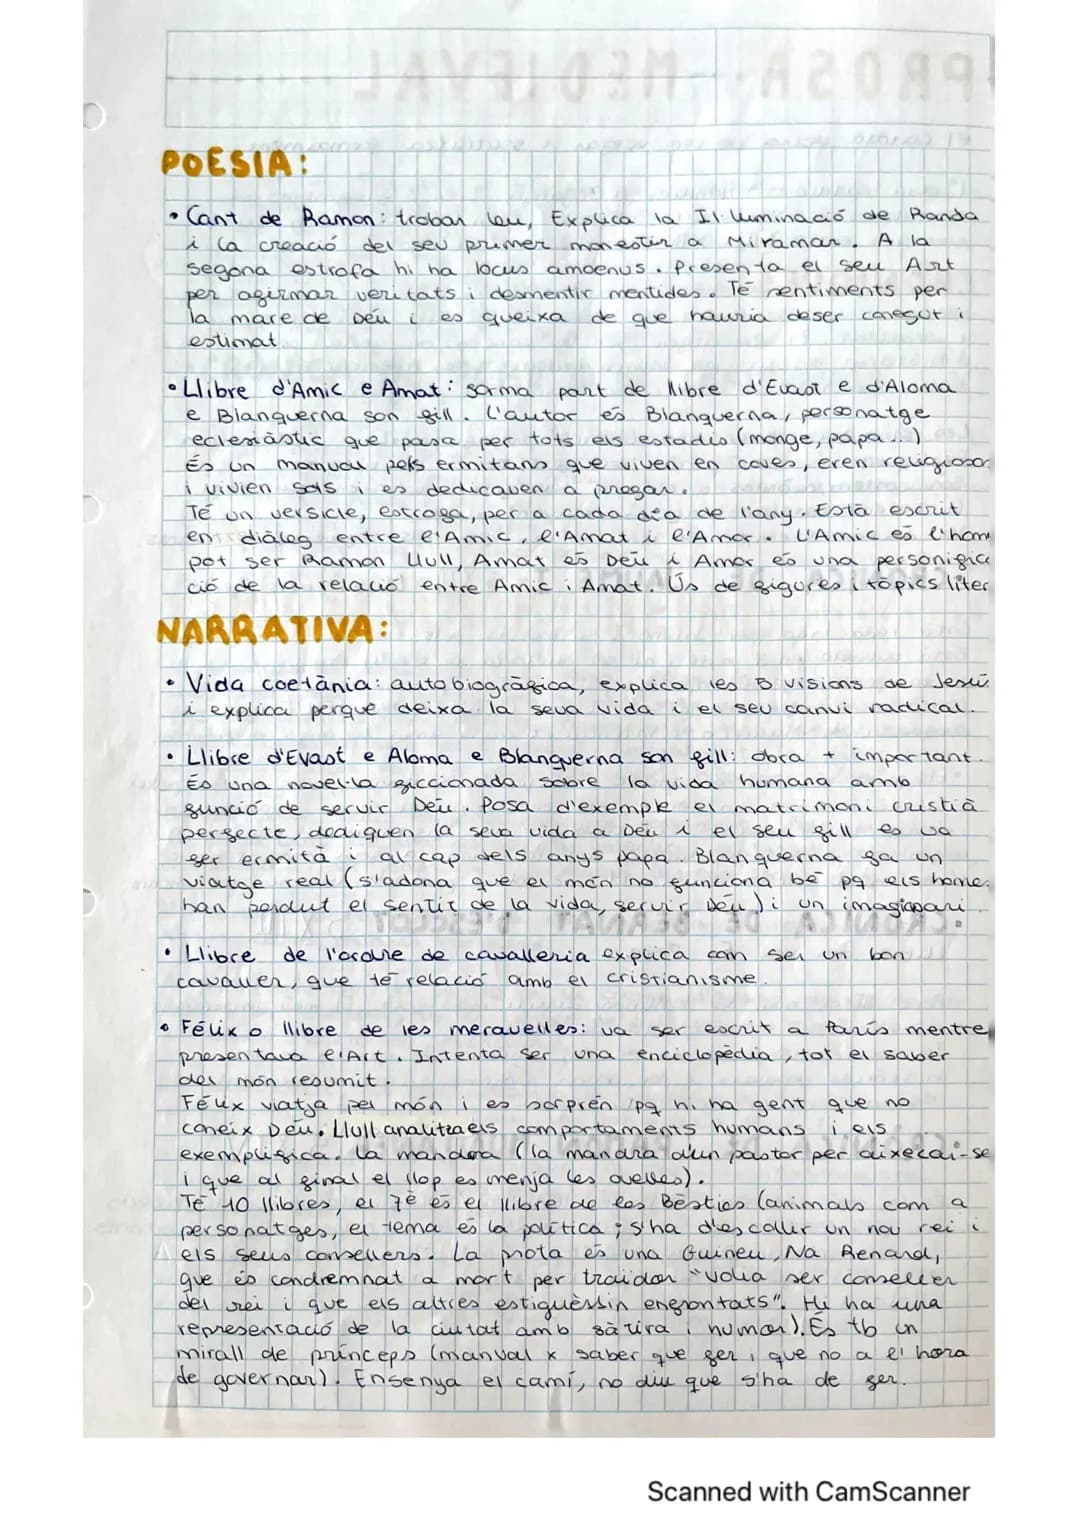 POESIA:
• Cant de Ramon: trobar leu, Explica la Il·luminació de Randa
i la creació del seu primer monestir a Miramar. A la
segona estrofa hi ha locus amoenus. Presenta el seu Art
per afirmar veritats i desmentir mentides. Té sentiments per
la mare de Déu i es queixa de que hauria deser conegut i
estimat.
• Llibre d'Amic e Amat: forma part de llibre d'Evast e d'Aloma
e Blanquerna son fill. L'autor és Blanquerna, personatge
eclesiàstic que pasa per tots els estadis (monge, papa...)
És un manual pels ermitans que viven en coves, eren religiosos
i vivien sols i es dedicaven a pregar.
Té un versicle, estrofa, per a cada dia de l'any. Està escrit
en diàleg entre l'Amic, l'Amat i l'Amor. L'Amic és l'hom
pot ser Ramon Llull, Amat és Déu i Amor és una personifica
ció de la relació entre Amic i Amat. Ús de figures i tòpics liter
NARRATIVA:
• Vida coetània: autobiogràfica, explica les 5 visions de Jesú
i explica perque deixa la seva vida i el seu canvi radical.
• Llibre d'Evast e Aloma e Blanquerna son fill: obra + important.
És una novel·la ficcionada sobre la vida humana amb
funció de servir Déu. Posa d'exemple el matrimoni cristià
perfecte, dediquen la seva vida a Déu i el seu fill es va
fer ermità i al cap dels anys papa. Blanquerna fa un
viatge real (s'adona que el món no funciona bé pq els home
han perdut el sentit de la vida, servir Déu) i un imaginari.
• Llibre de l'ordre de cavalleria explica com ser un bon
cavaller, que té relació amb el cristianisme.
• Fèlix o llibre de les meravelles: va ser escrit a París mentre
presentava l'Art. Intenta ser una enciclopèdia, tot el saber
del món resumit.
Fèlix viatja pel món i es sorprén pq hi ha gent que no
coneix Déu. Llull analitza els comportaments humans i els
exemplifica. la mandra (la mandra d'un pastor per aixecar-se
i que al final el llop es menja les ovelles).
Té 10 llibres, el 7è és el llibre de les Bèsties (animals com a
personatges, el tema és la política; s'ha d'escollir un nou rei i
els seus consellers. La prota és una Guineu, Na Renard,
que és condremnat a mort per traidor "volia ser conseller
del rei i que els altres estiguèssin enfrontats". Hi ha una
representació de la ciutat amb sàtira i humor). És tb un
mirall de prínceps (manual x saber que fer i que no a l'hora
de governar). Ensenya el camí, no diu que s'ha de fer.
Scanned with CamScanner